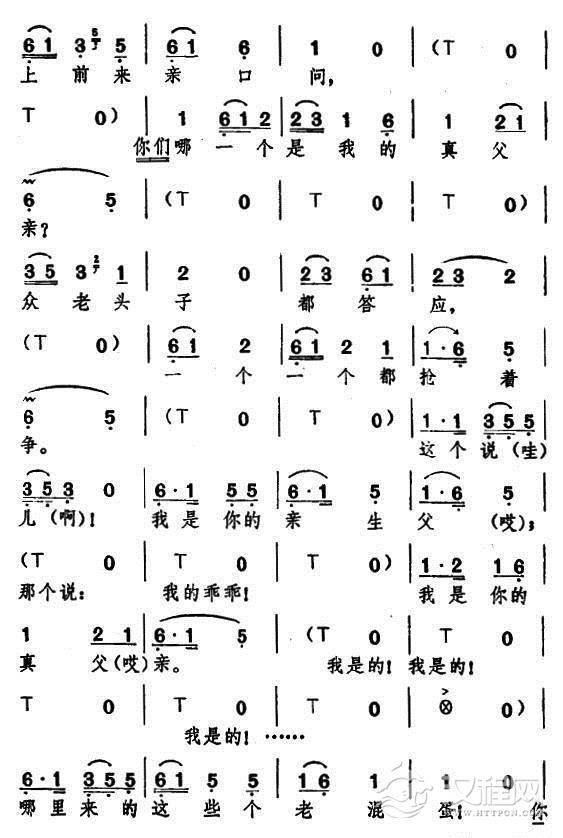 6 1 3 5 | 6 1 6 | 1 0 | (T 0
上 前 来 亲 口 问,
T 0) | 1 6 1 2 | 2 3 1 6 | 1 2 1
你们 哪 一 个 是 我 的 真 父
6 5 | (T 0 | T 0 | T 0)
亲?
3 5 3 1 | 2 0 | 2 3 6 1 | 2 3 2
众 老 头 子 都 答 应,
(T 0) | 6 1 2 | 6 1 2 1 | 1·6 5
一 个 一 个 都 抢 着
6 5 | (T 0 | T 0) | 1·1 3 5 5
争。 这 个 说 (哇)
3 5 3 0 | 6·1 5 5 | 6·1 5 | 1·6 5
儿 (啊)! 我 是 你 的 亲 生 父 (哎);
(T 0 | T 0 | T 0) | 1·2 1 6
那个说: 我的乖乖! 我 是 你 的
1 2 1 | 6·1 5 | (T 0 | T 0
真 父(哎)亲。 我是的!我是的!
T 0 | T 0 | T 0 | ⊗ 0)
我是的!……
6·1 3 5 5 | 6 1 5 5 5 | 1 6 1 | 1
哪 里 来 的 这 些 个 老 混 蛋! 你
HTTPCN.COM